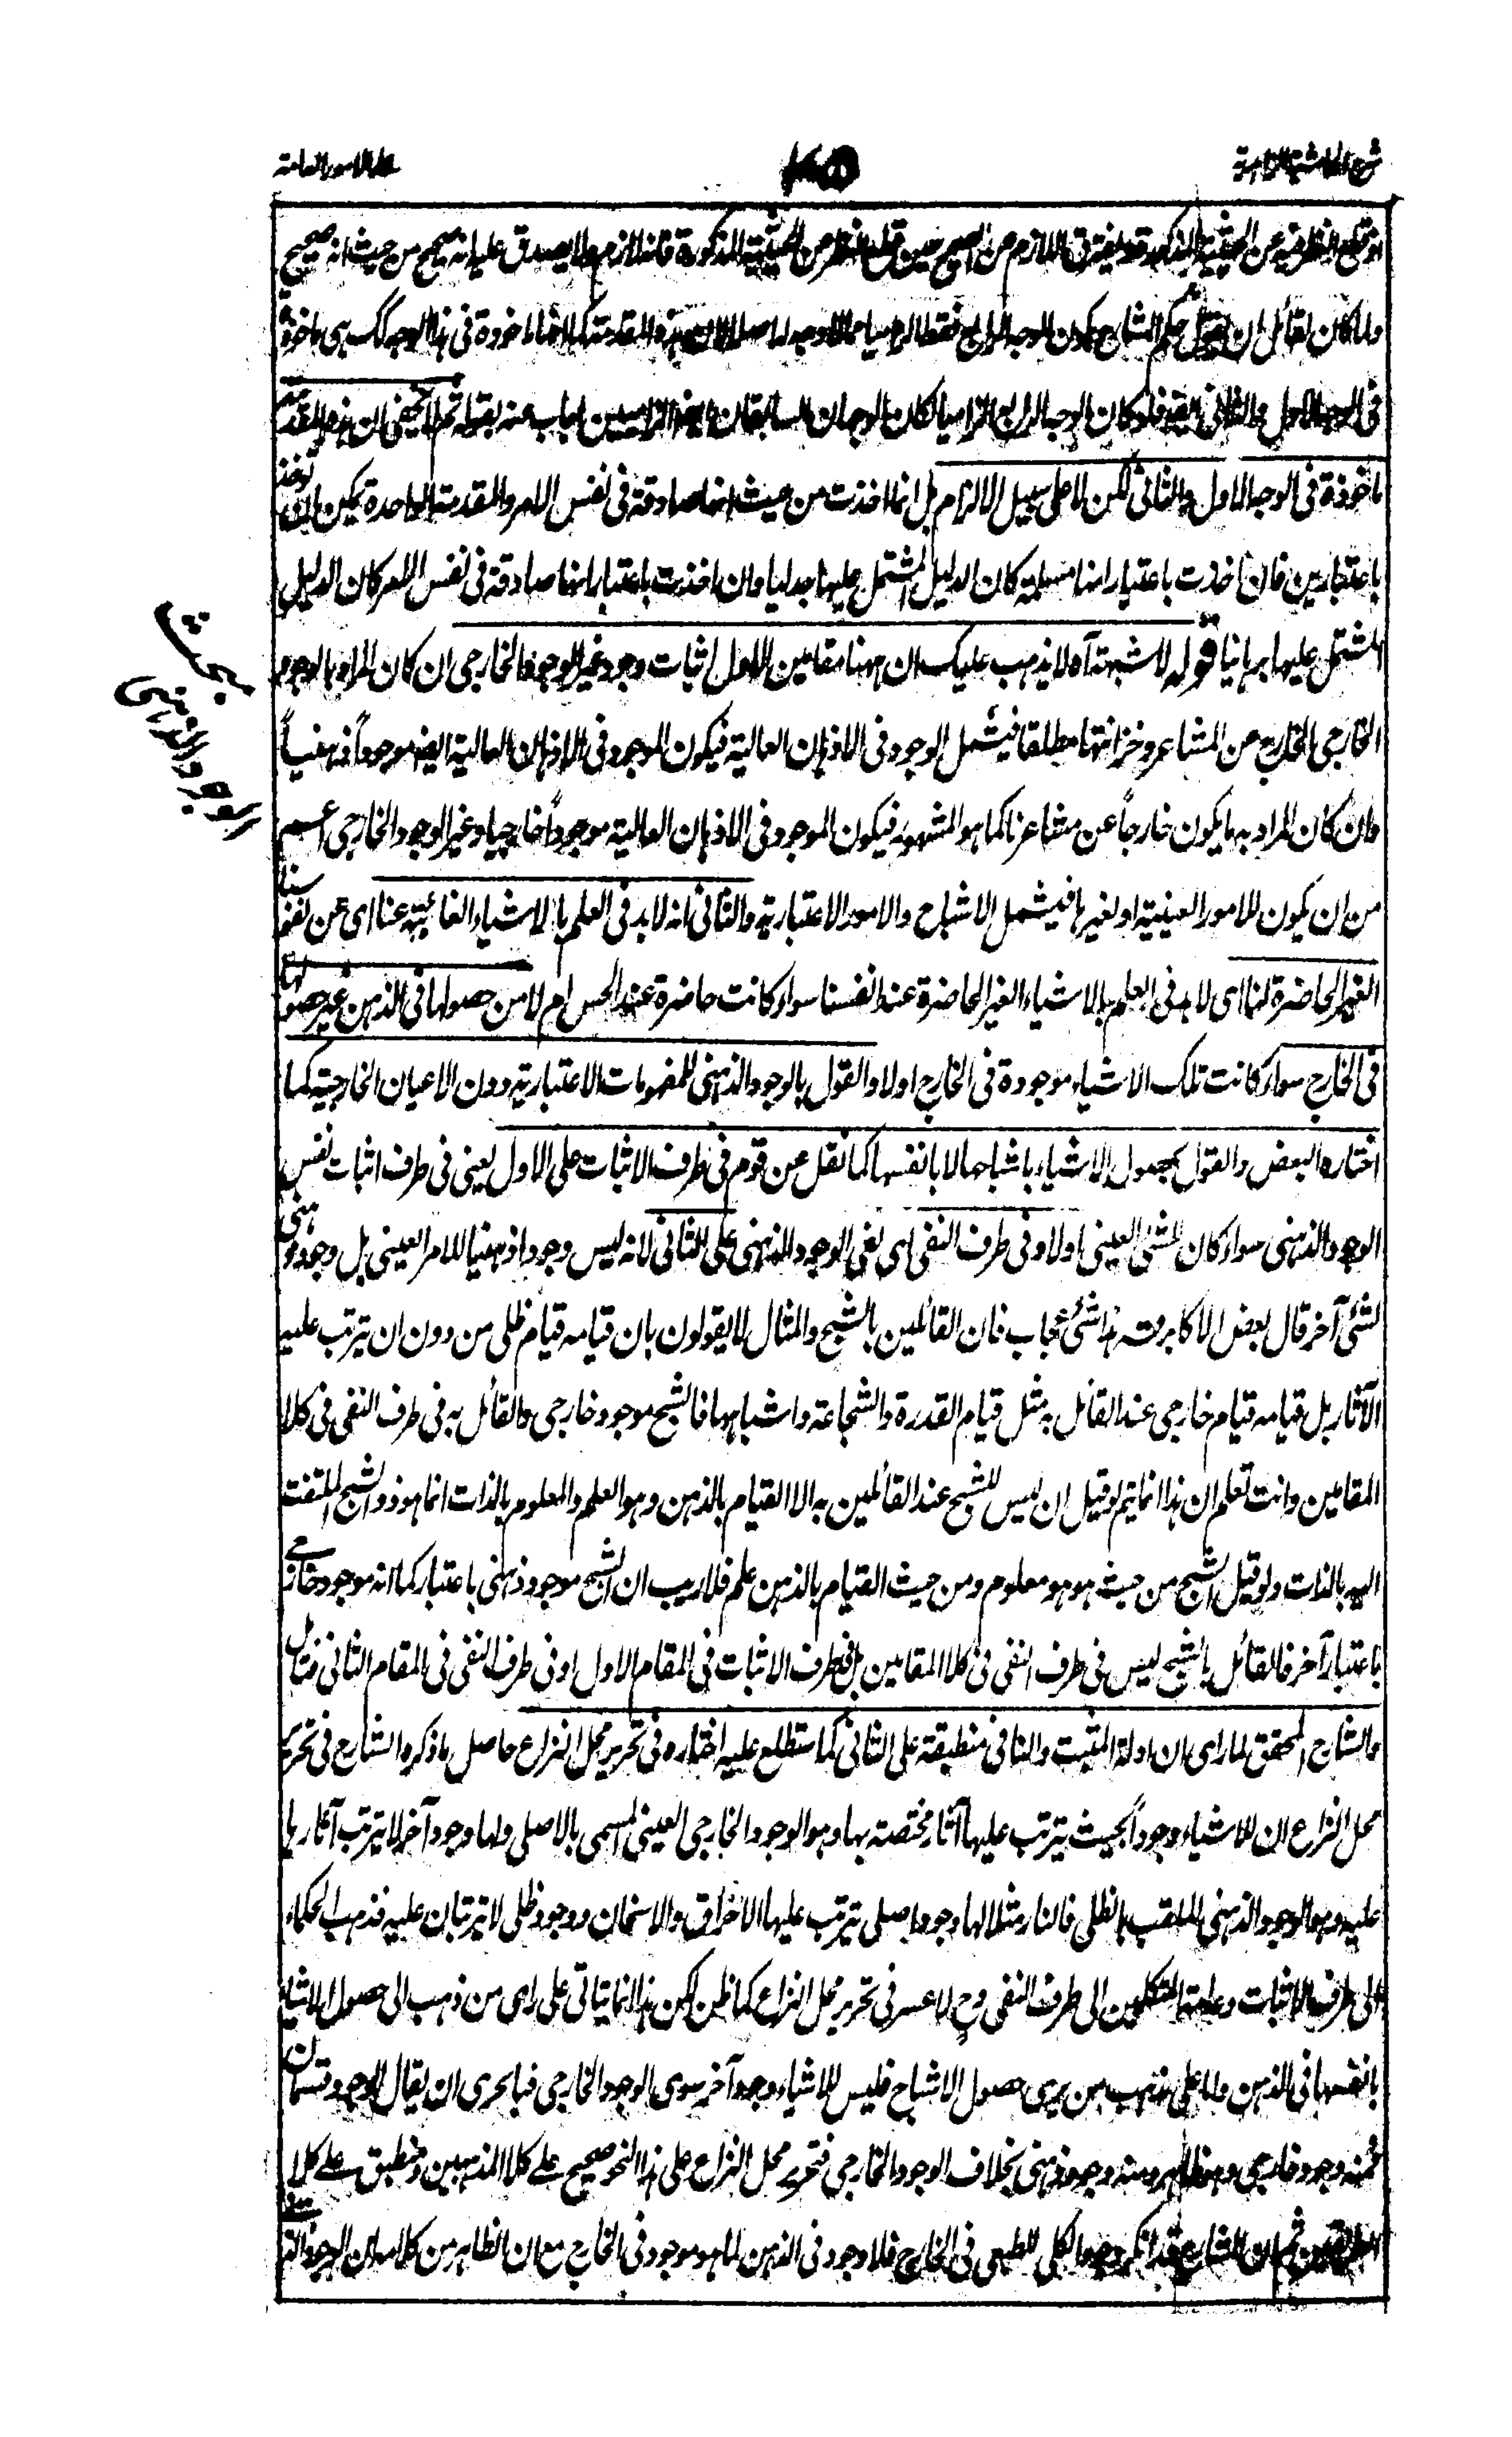 شرح الحاشية الزاهدية
على الامور العامة
قطع النظر عن الحيثية المذكورة فقد يفترق اللازم من الصحيح حين قطع النظر عن الحيثية المذكورة فانه لازم مما يصدق عليه انه صحيح من حيث انه صحيح
ولما كان لقائل ان يقول حكم الشارح بكون الوجه الرابع فقط الزاميا مما لا وجه له اصلا لان هذه المقدمة كما انها ماخوذة في هذا الوجه كك هي ماخوذة
في الوجه الاول والثاني ايضا فلو كان الوجه الرابع الزاميا لكان الوجهان السابقان ايضا الزاميين اجاب عنه بقوله ثم لا يخفى ان هذه المقدمة
ماخوذة في الوجه الاول والثاني لكن لا على سبيل الالزام بل انما اخذت من حيث انها صادقة في نفس الامر والمقدمة الواحدة يمكن ان توخذ
باعتبارين فان اخذت باعتبار انها مسلمة كان الدليل المشتمل عليها جدليا وان اخذت باعتبار انها صادقة في نفس الامر كان الدليل
المشتمل عليها برهانيا قوله لا شبهة آه لا يذهب عليك ان ههنا مقامين الاول اثبات وجود غير الوجود الخارجي ان كان المراد بالوجود
الخارجي الخارج عن المشاعر وخزانتها مطلقا فيشمل الوجود في الاذهان العالية فيكون الموجود في الاذهان العالية ايضا موجوداً ذهنياً
وان كان المراد به ما يكون خارجاً عن مشاعرنا كما هو المشهور فيكون الموجود في الاذهان العالية موجوداً خارجيا وغير الوجود الخارجي اعم
من ان يكون للامور العينية او لغيرها فيشمل الاشباح والامور الاعتبارية والثاني انه لا بد في العلم بالاشياء الغائبة عنا اى عن نفوسنا
الغير الحاضرة لنا اى لا بد في العلم بالاشياء الغير الحاضرة عند انفسنا سواء كانت حاضرة عند الحس ام لا من حصولها في الذهن غير حصولها
في الخارج سواء كانت تلك الاشياء موجودة في الخارج اولا والقول بالوجود الذهني للمفهومات الاعتبارية دون الاعيان الخارجية كما
اختاره البعض والقول بحصول الاشياء باشباحها لا بانفسها كما نقل عن قوم في طرف الاثبات على الاول يعني في طرف اثبات نفس
الوجود الذهني سواء كان للشئ العيني اولا وفي طرف النفي اى نفي الوجود الذهني على الثاني لانه ليس وجودا ذهنيا للامر العيني بل وجود ذهني
لشئ آخر قال بعض الاكابر قه هذا شئ عجاب فان القائلين بالشبح والمثال لا يقولون بان قيامه قيام ظلي من دون ان تترتب عليه
الآثار بل قيامه قيام خارجي عند القائل به مثل قيام القدرة والشجاعة واشباههما فالشبح موجود خارجي والقائل به في طرف النفي في كلا
المقامين وانت تعلم ان هذا انما يتم لو قيل ان ليس للشبح عند القائلين به الا القيام بالذهن وهو العلم والمعلوم بالذات انما هو ذو الشبح الملتفت
اليه بالذات ولو قيل الشبح من حيث هو هو معلوم ومن حيث القيام بالذهن علم فلا ريب ان الشبح موجود ذهني باعتبار كما انه موجود خارجي
باعتبار آخر فالقائل بالشبح ليس في طرف النفي في كلا المقامين بل في طرف الاثبات في المقام الاول او في طرف النفي في المقام الثاني فتامل
والشارح المحقق لما راى ان ادلة المثبت والنافي منطبقة على الثاني كما ستطلع عليه اختاره في تحرير محل النزاع حاصل ما ذكره الشارح في تحرير
محل النزاع ان للاشياء وجوداً بحيث يترتب عليها آثار مختصة بها وهو الوجود الخارجي العيني المسمى بالاصلي ولها وجود آخر لا تترتب آثارها
عليه وهو الوجود الذهني الملقب بالظلي فالنار مثلا لها وجود اصلي تترتب عليها الاحراق والاسخان ووجود ظلي لا تترتبان عليه فذهب الحكماء
الى طرف الاثبات وعامة المتكلمين الى طرف النفي وح لا عسر في تحرير محل النزاع كما ظن لكن هذا انما يتاتى على راى من ذهب الى حصول الاشياء
بانفسها في الذهن واما على مذهب من يرى حصول الاشباح فليس للاشياء وجود آخر سوى الوجود الخارجي فبالحرى ان يقال الوجود قسمان
فمنه وجود خارجي وهو ظاهر ومنه وجود ذهني بخلاف الوجود الخارجي فتحرير محل النزاع على هذا النحو صحيح على كلا المذهبين ومنطبق على كلا
الطريقين ثم ان الشارح قد انكر وجود الكلي الطبعي في الخارج فلا وجود في الذهن لما هو موجود في الخارج مع ان الظاهر من كلامه ان الوجود
مبحث
الوجود الذهني